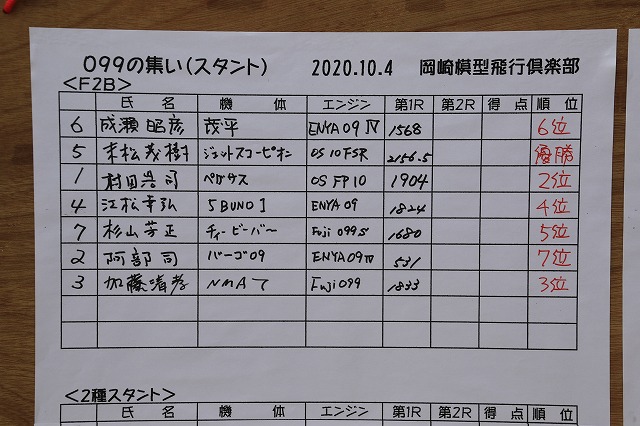 099の集い(スタント) 2020.10.4 岡崎模型飛行倶楽部
<F2B>
氏名 機体 エンジン 第1R 第2R 得点 順位
6 成瀬昭彦 茂平 ENYA09Ⅳ 1568 6位
5 末松茂樹 ジェットスコーピオン OS10FSR 2156.5 優勝
1 村田浩司 ペガサス OS FP10 1904 2位
4 江松幸弘 ENYA 09 1824 4位
7 杉山芳正 ティービーバー Fuji 099S 1680 5位
2 阿部司 バーゴ09 ENYA09Ⅳ 531 7位
3 加藤晴孝 Fuji 099 1833 3位
<2種スタント>
氏名 機体 エンジン 第1R 第2R 得点 順位